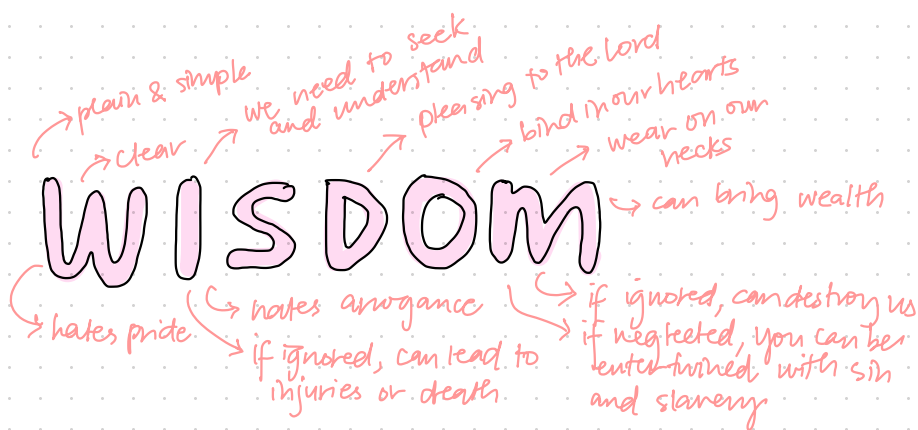 plain & simple
clear
we need to seek
and understand
pleasing to the Lord
bind in our hearts
wear on our
necks
can bring wealth
WISDOM
hates pride
hates arrogance
if ignored, can lead to
injuries or death
if ignored, can destroy us
if neglected, you can be
entertwined with sin
and slavery